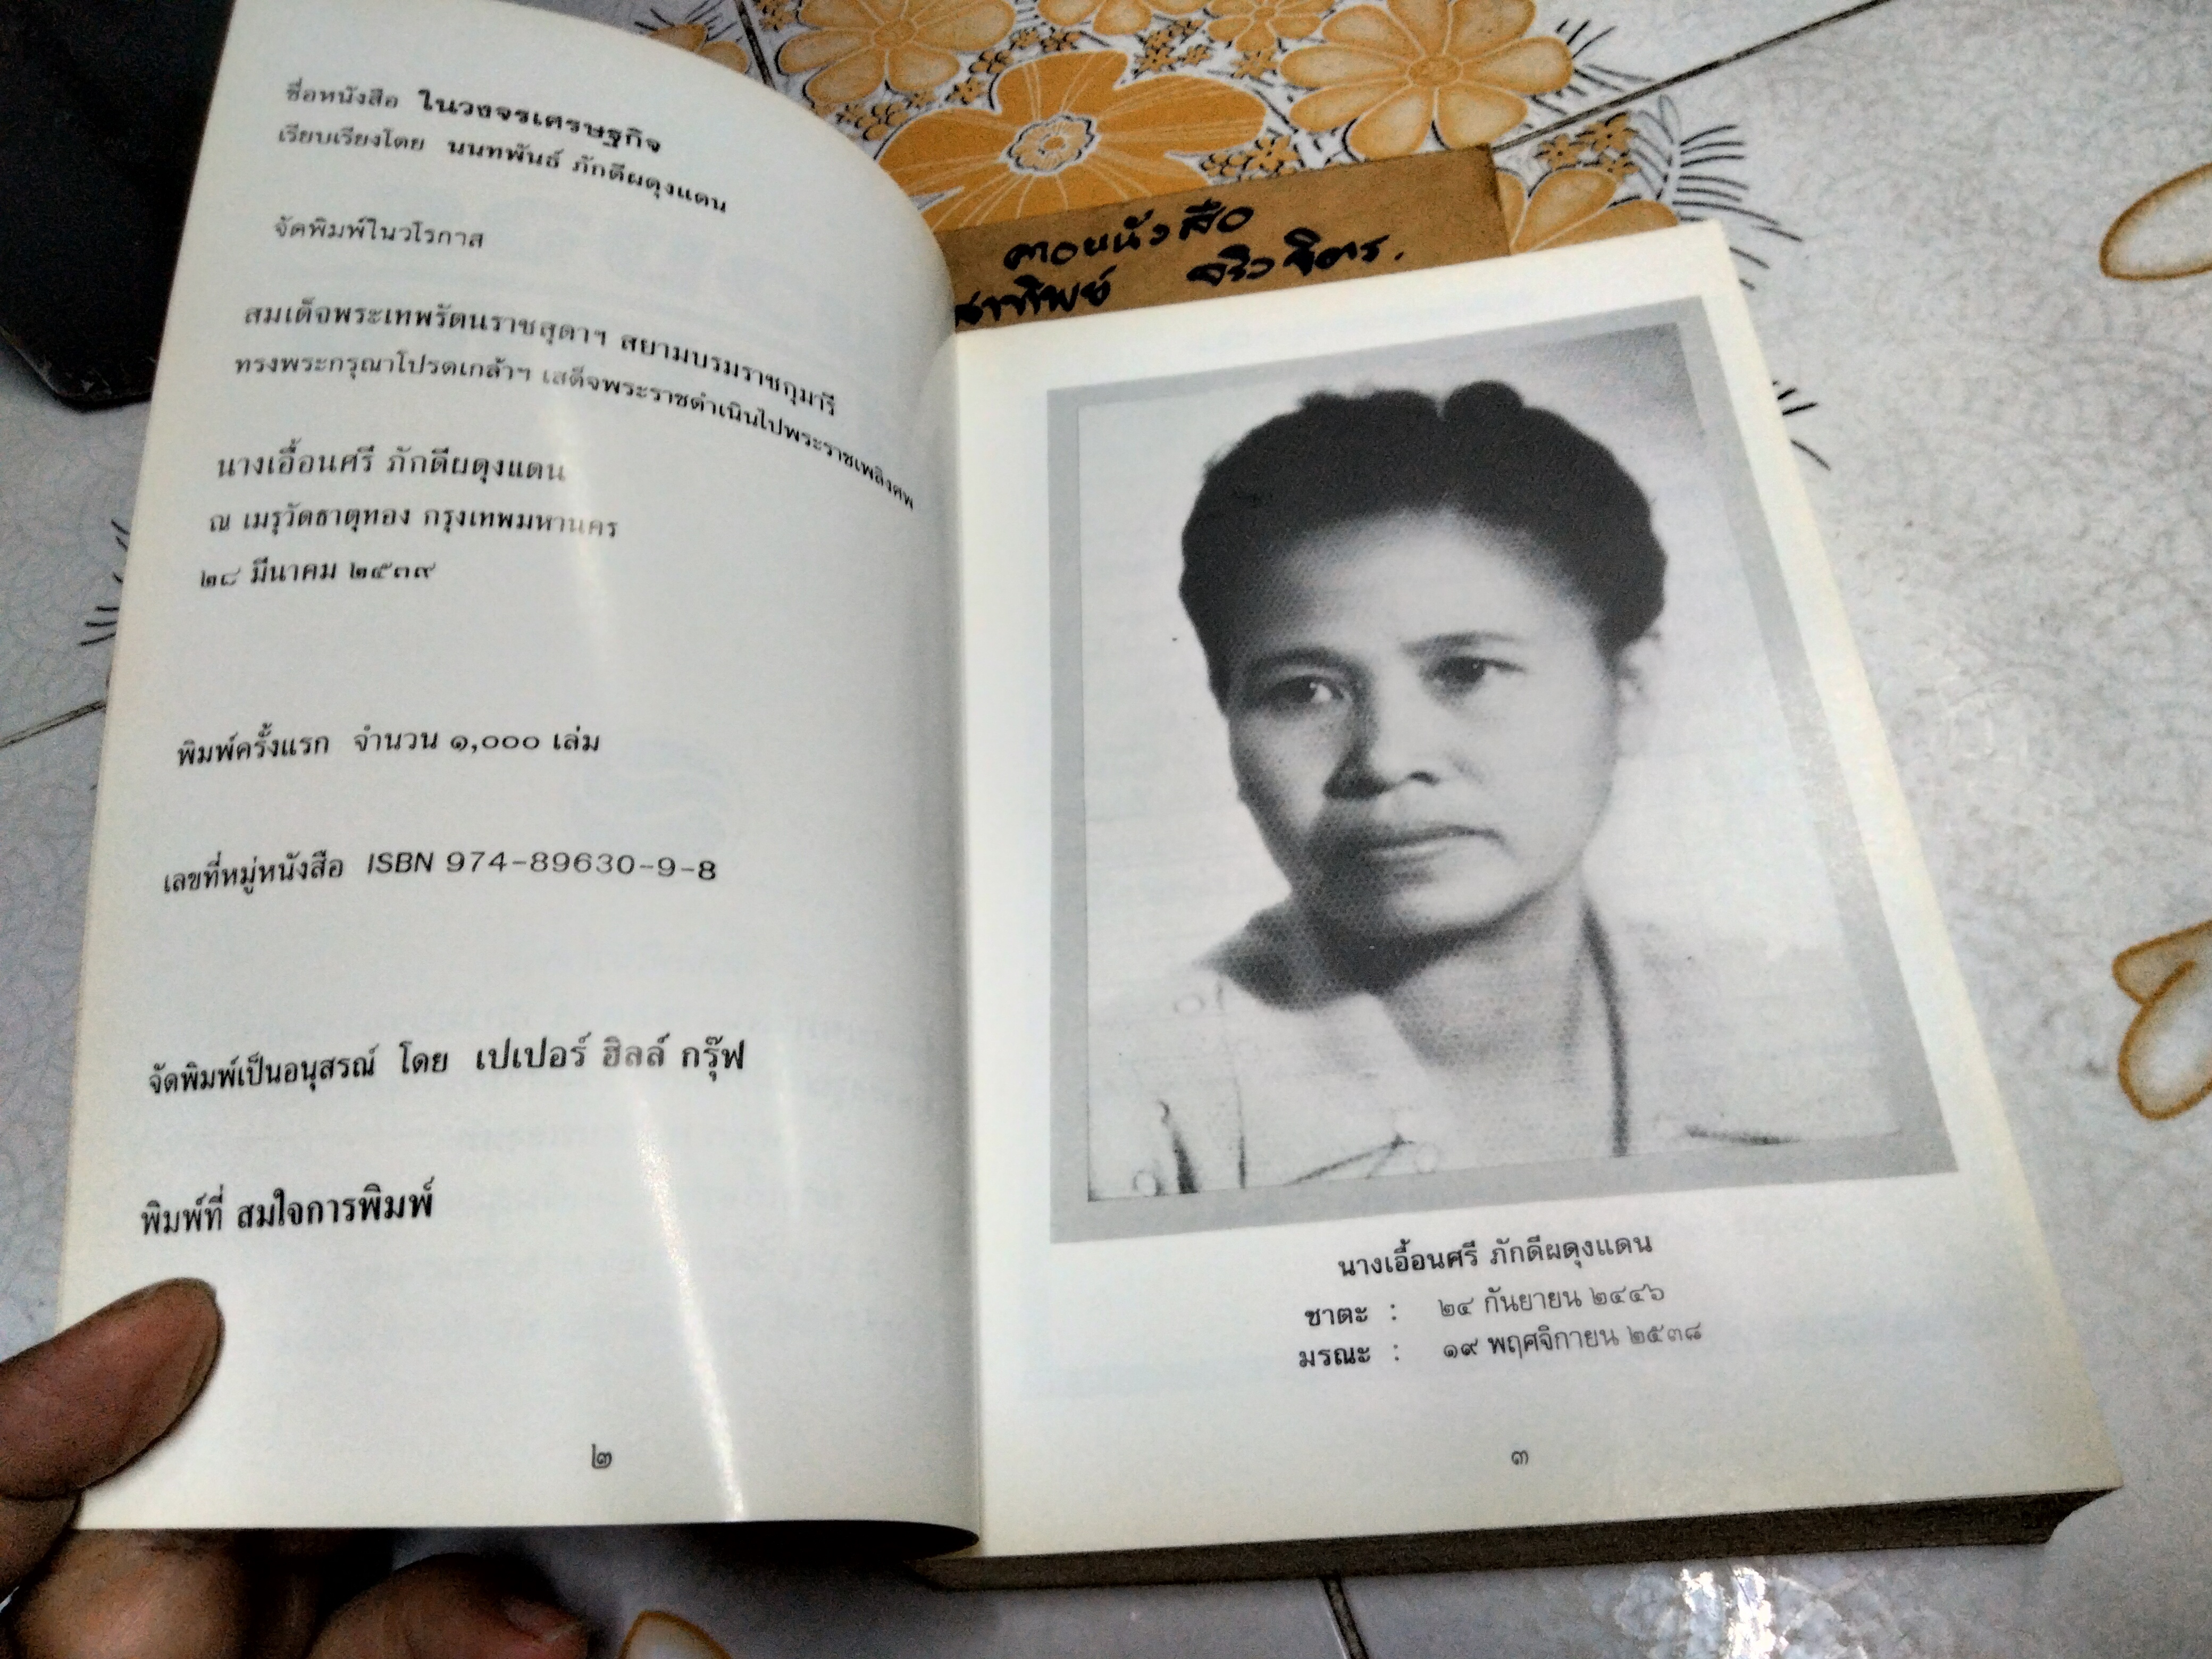 ชื่อหนังสือ ในวงจรเศรษฐกิจ
เรียบเรียงโดย นนทพันธ์ ภักดีผดุงแดน
จัดพิมพ์ในวโรกาส
สมเด็จพระเทพรัตนราชสุดาฯ สยามบรมราชกุมารี
ทรงพระกรุณาโปรดเกล้าฯ เสด็จพระราชดำเนินไปพระราชเพลิงศพ
นางเอื้อนศรี ภักดีผดุงแดน
ณ เมรุวัดธาตุทอง กรุงเทพมหานคร
๒๘ มีนาคม ๒๕๓๙
พิมพ์ครั้งแรก จำนวน ๑,๐๐๐ เล่ม
เลขที่หมู่หนังสือ ISBN 974-89630-9-8
จัดพิมพ์เป็นอนุสรณ์ โดย เปเปอร์ ฮิลล์ กรุ๊ฟ
พิมพ์ที่ สมใจการพิมพ์
๒
หนังสือ
นางเอื้อนศรี ภักดีผดุงแดน
ชาตะ : ๒๔ กันยายน ๒๔๔๖
มรณะ : ๑๙ พฤศจิกายน ๒๕๓๘
๓